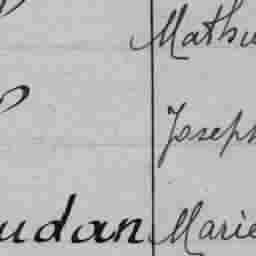 Mathu
Joseph
udan Marie